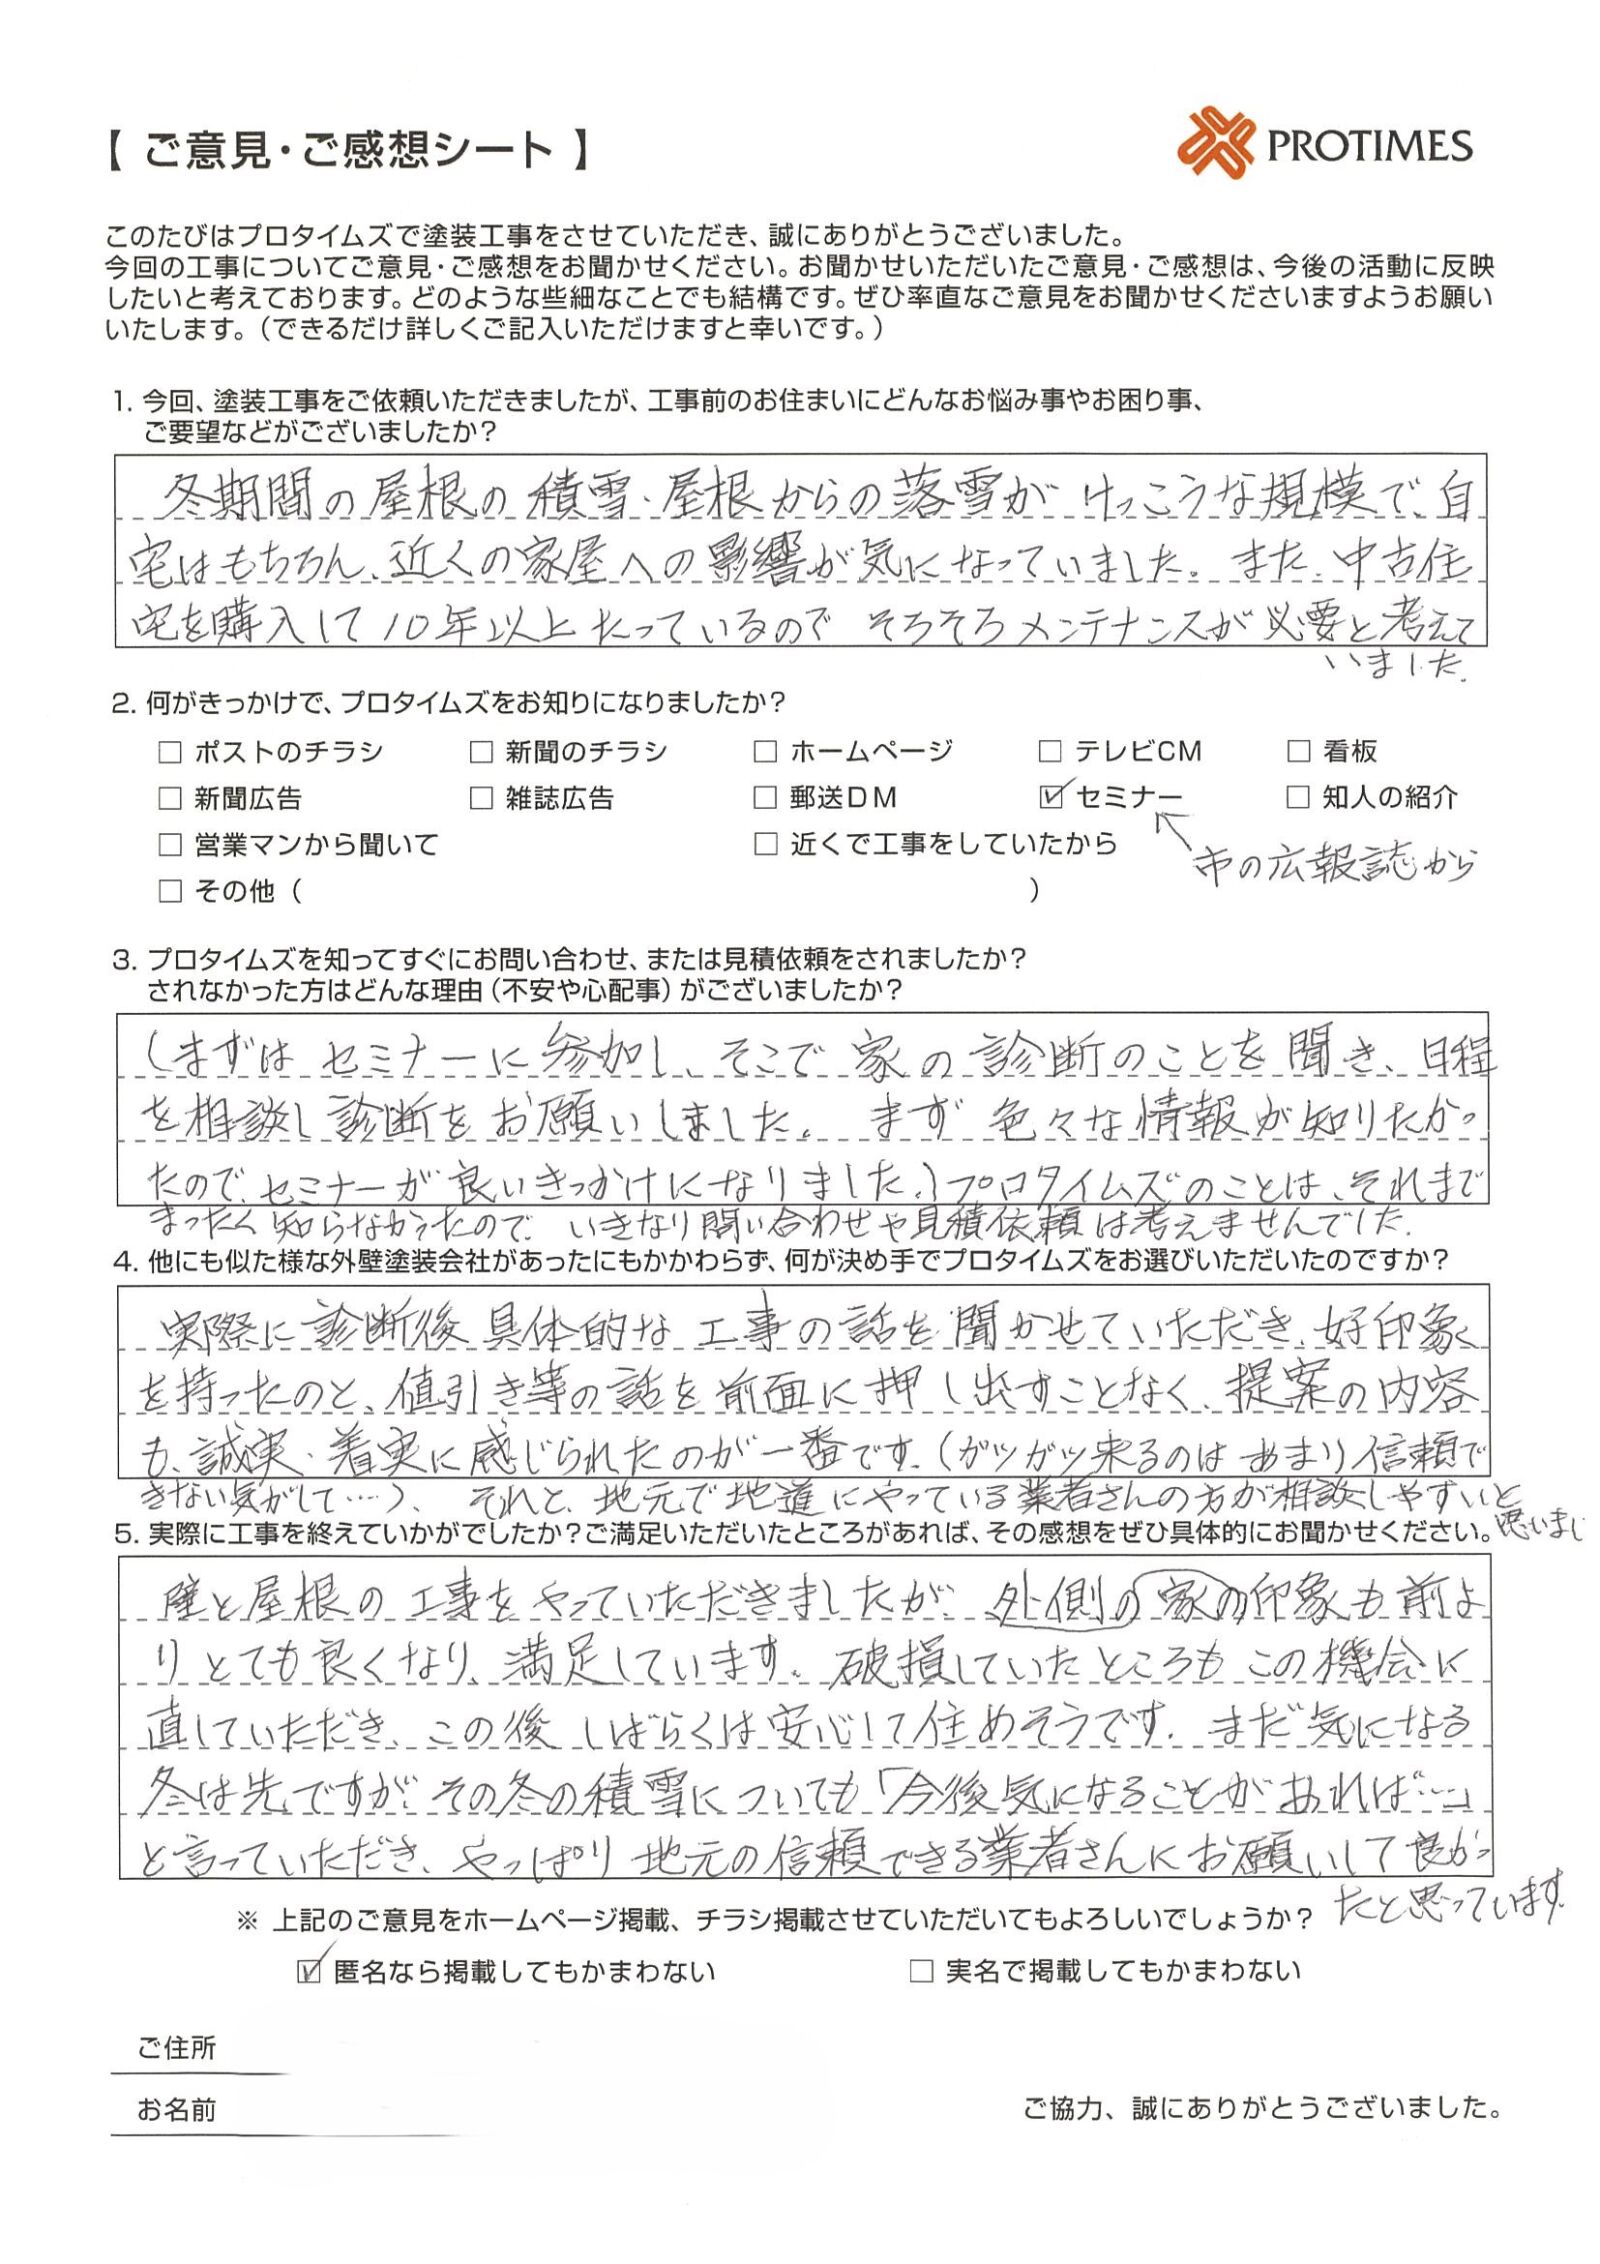 【 ご意見・ご感想シート 】
PROTIMES
このたびはプロタイムズで塗装工事をさせていただき、誠にありがとうございました。
今回の工事についてご意見・ご感想をお聞かせください。お聞かせいただいたご意見・ご感想は、今後の活動に反映
したいと考えております。どのような些細なことでも結構です。ぜひ率直なご意見をお聞かせくださいますようお願い
いたします。（できるだけ詳しくご記入いただけますと幸いです。）
1. 今回、塗装工事をご依頼いただきましたが、工事前のお住まいにどんなお悩み事やお困り事、
ご要望などがございましたか？
冬期間の屋根の積雪・屋根からの落雪がけっこうな規模で、自
宅はもちろん、近くの家屋への影響が気になっていました。また、中古住
宅を購入して10年以上たっているのでそろそろメンテナンスが必要と考えて
いました。
2. 何がきっかけで、プロタイムズをお知りになりましたか？
□ ポストのチラシ □ 新聞のチラシ □ ホームページ □ テレビCM □ 看板
□ 新聞広告 □ 雑誌広告 □ 郵送DM ☑ セミナー □ 知人の紹介
□ 営業マンから聞いて □ 近くで工事をしていたから
市の広報誌から
□ その他（ ）
3. プロタイムズを知ってすぐにお問い合わせ、または見積依頼をされましたか？
されなかった方はどんな理由（不安や心配事）がございましたか？
（まずはセミナーに参加し、そこで家の診断のことを聞き、日程
を相談し診断をお願いしました。まず色々な情報が知りたかっ
たので、セミナーが良いきっかけになりました。）プロタイムズのことは、それまで
まったく知らなかったので、いきなり問い合わせや見積依頼は考えませんでした。
4. 他にも似た様な外壁塗装会社があったにもかかわらず、何が決め手でプロタイムズをお選びいただいたのですか？
実際に診断後具体的な工事の話を聞かせていただき、好印象
を持ったのと、値引き等の話を前面に押し出すことなく、提案の内容
も、誠実・着実に感じられたのが一番です。（ガツガツ来るのはあまり信頼で
きない気がして…）、それと、地元で地道にやっている業者さんの方が相談しやすいと
思いまし
5. 実際に工事を終えていかがでしたか？ご満足いただいたところがあれば、その感想をぜひ具体的にお聞かせください。
壁と屋根の工事をやっていただきましたが、外側の家の印象も前よ
りとても良くなり、満足しています。破損していたところもこの機会に
直していただき、この後しばらくは安心して住めそうです。まだ気になる
冬は先ですが、その冬の積雪についても「今後気になることがあれば…」
と言っていただき、やっぱり地元の信頼できる業者さんにお願いして良かっ
たと思っています。
※ 上記のご意見をホームページ掲載、チラシ掲載させていただいてもよろしいでしょうか？
☑ 匿名なら掲載してもかまわない □ 実名で掲載してもかまわない
ご住所
お名前
ご協力、誠にありがとうございました。